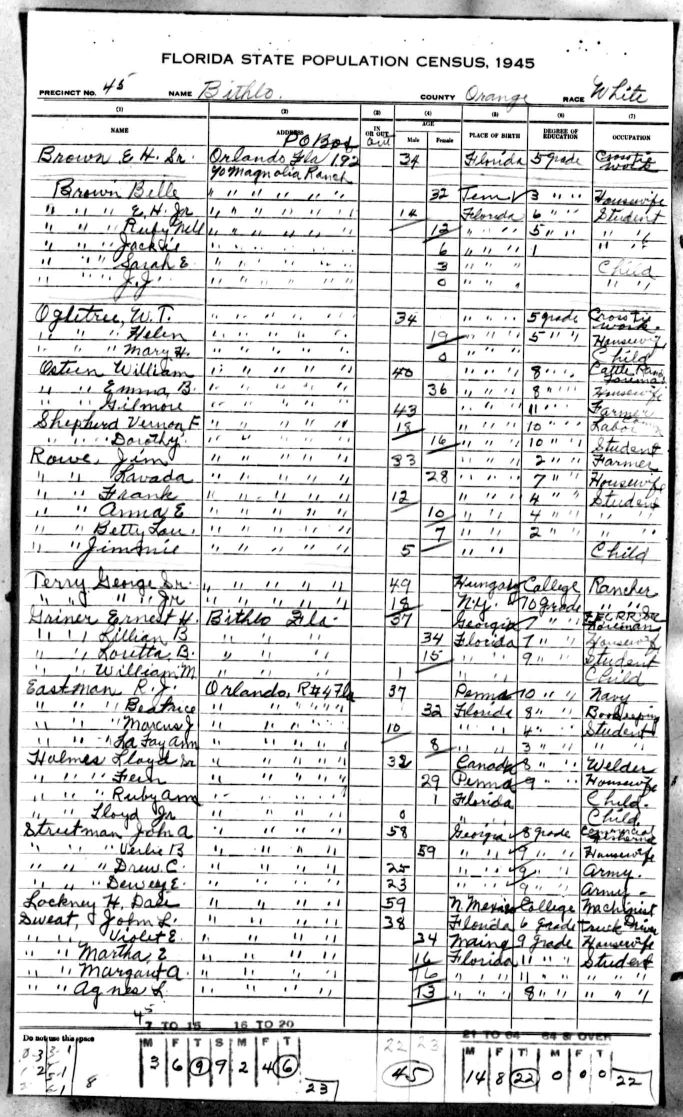 FLORIDA STATE POPULATION CENSUS, 1945
PRECINCT NO. 45 NAME Bithlo. COUNTY Orange RACE White
(1) (2) (3) (4) (5) (6) (7)
NAME ADDRESS IN OR OUT AGE PLACE OF BIRTH DEGREE OF EDUCATION OCCUPATION
Male Female
P O Box out
Brown E H. Sr. Orlando Fla 192 34 Florida 5 grade Crosstie work
% Magnolia Ranch
Brown Belle " " " " " " 32 Tenn 3 " " Housewife
" " " E. H. Jr " " " " " " 14 Florida 6 " " Student
" " " Ruby Nell " " " " " " 12 " " " 5 " " " "
" " " Jackie " " " " " " 6 " " " 1 " "
" " " Sarah E. " " " " " " 3 " " " Child
" " " J. J. " " " " " " 0 " " " " "
Ogletree, W. T. " " " " " " 34 " " " 5 grade Crosstie work.
" " Helen " " " " " " 19 " " " 5 " " Housewife
" " Mary H. " " " " " " 0 " " " Child
Osteen William " " " " " " 40 " " " 8 " " Cattle Ranch Foreman
" " Emma B. " " " " " " 36 " " " 8 " " Housewife
" " Gilmore " " " " " " 43 " " " 11 " " Farmer
Shepherd Vernon F " " " " " " 18 " " " 10 " " Labor
" " Dorothy " " " " " " 16 " " " 10 " " Student
Rowe, Jim " " " " " " 33 " " " 2 " " Farmer
" " Lavada " " " " " " 28 " " " 7 " " Housewife
" " Frank " " " " " " 12 " " " 4 " " Student
" " Anna E " " " " " " 10 " " " 4 " " " "
" " Betty Lou " " " " " " 7 " " " 2 " " " "
" " Jimmie " " " " " " 5 " " " Child
Terry George Sr. " " " " " " 49 Hungary College Rancher
" " " " Jr " " " " " " 18 N.Y. 10 grade " "
Griner Ernest H. Bithlo Fla. 37 Georgia 7 " " Foreman
" " Lillian B " " " 34 Florida 7 " " Housewife
" " Loretta B. " " " 15 " " " 9 " " Student
" " William M. " " " 1 " " " Child
Eastman R. J. Orlando, R#4 Fla 37 Penna 10 " " Navy
" " Beatrice " " " " " 32 Florida 8 " " Bookeeping
" " Marcus J. " " " " " 10 " " " 4 " " Student
" " La Fay Ann " " " " " 8 " " " 3 " " " "
Holmes Lloyd Sr " " " " " 32 Canada 8 " " Welder
" " Fern " " " " " 29 Penna 9 " " Housewife
" " Ruby Ann " " " " " 1 Florida Child.
" " Lloyd Jr " " " " " 0 " " " Child
Streetman John A " " " " " 58 Georgia 8 grade Commercial
" " Verlie B " " " " " 59 " " " 9 " " Housewife
" " " Drew C. " " " " " 25 " " " 9 " " Army.
" " " Dewey E. " " " " " 23 " " " 9 " " Army -
Lockney H. Dale " " " " " 59 N. Mexico College Machinist
Sweat, John L. " " " " " 38 Florida 6 grade Truck Driver
" " Violet E. " " " " " 34 Maine 9 grade Housewife
" " Martha E " " " " " 16 Florida 11 " " Student
" " Margaret A. " " " " " 16 " " " 11 " " " "
" " Agnes L. " " " " " 13 " " " 8 " " " "
45
7 TO 15 16 TO 20 22 23 21 TO 64 64 & OVER
Do not use this space M F T S M F T M F T M F T
3 6 9 9 2 4 6 45 14 8 22 0 0 0 22
8 23